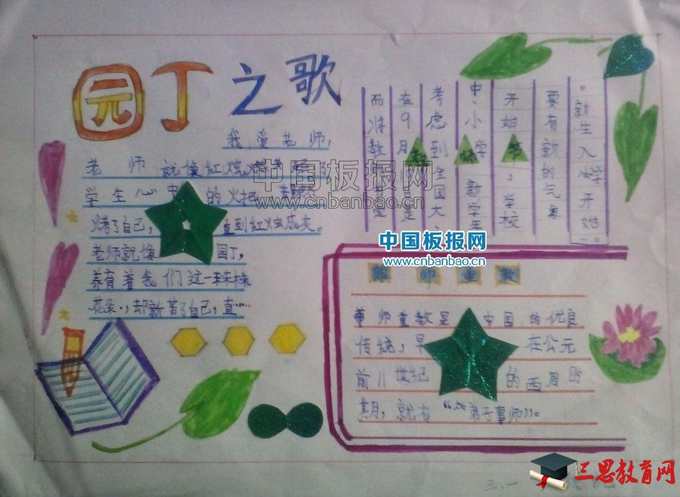 园丁之歌
我爱老师,
老师就像红烛
学生心中的火把
了自己,直到红烛成灰。
老师就像园丁,
养育着我们这一朵朵
花朵,却辛苦了自己,直……
中国板报网
www.cnbanbao.cn
而将教师
在9月是
考虑到全国大
中、小学新学年
开始,学校
要有新的气象
。新生入学开始
中国板报网
www.cnbanbao.cn
尊师重教
尊师重教是中国的优良
传统,早在公元
前11世纪的西周时
期,就有“弟子事师”。
三思教育网
三.一